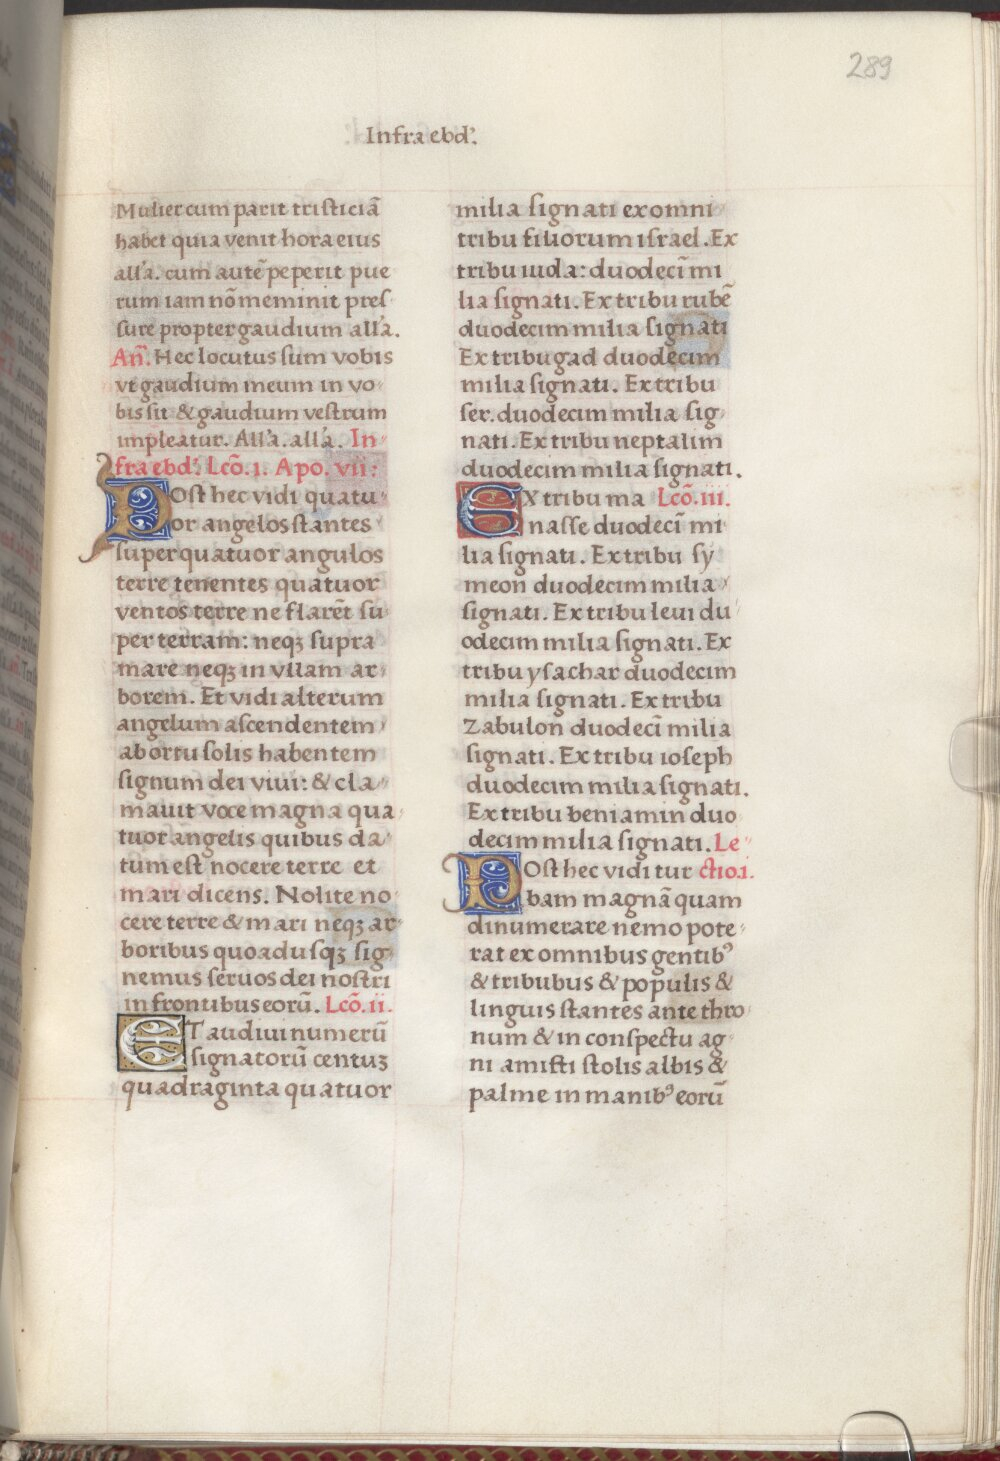 289
Infra ebdꝰ.
Mulier cum parit tristiciã
habet quia venit hora eius
all'a. cum autẽ peperit pue
rum iam nõ meminit pres
sure propter gaudium all'a.
Añ. Hec locutus sum vobis
vt gaudium meum in vo
bis sit & gaudium vestrum
impleatur. All'a. all'a. In
fra ebdꝰ. Lcõ. i. Apo. vii:
Post hec vidi quatu
or angelos stantes
super quatuor angulos
terre tenentes quatuor
ventos terre ne flarẽt su
per terram: neqꝫ supra
mare neqꝫ in vllam ar
borem. Et vidi alterum
angelum ascendentem
ab ortu solis habentem
signum dei viui: & cla
mauit voce magna qua
tuor angelis quibus da
tum est nocere terre et
mari dicens. Nolite no
cere terre & mari neqꝫ ar
boribus quoadusqꝫ sig
nemus seruos dei nostri
in frontibus eorũ. Lcõ. ii.
ET audiui numerũ
signatorũ centuꝫ
quadraginta quatuor
milia signati ex omni
tribu filiorum israel. Ex
tribu iuda: duodecĩ mi
lia signati. Ex tribu rubẽ
duodecim milia signati
Ex tribu gad duodecim
milia signati. Ex tribu
ser. duodecim milia sig
nati. Ex tribu neptalim
duodecim milia signati.
EX tribu ma Lcõ. iii.
nasse duodecĩ mi
lia signati. Ex tribu sy
meon duodecim milia
signati. Ex tribu leui du
odecim milia signati. Ex
tribu ysachar duodecim
milia signati. Ex tribu
zabulon duodecĩ milia
signati. Ex tribu ioseph
duodecim milia signati.
Ex tribu beniamin duo
decim milia signati. Le
Post hec vidi tur ctio.i.
bam magnã quam
dinumerare nemo pote
rat ex omnibus gentibꝰ
& tribubus & populis &
linguis stantes ante thro
num & in conspectu ag
ni amicti stolis albis &
palme in manibꝰ eorũ